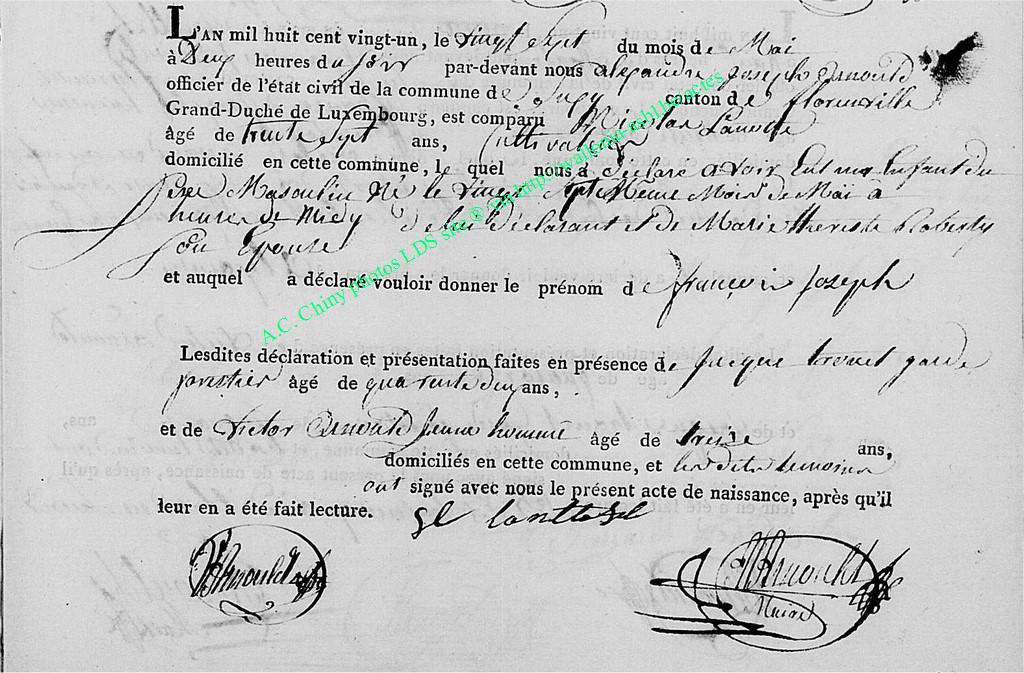 L'AN mil huit cent vingt-un, le vingt sept du mois de Mai
à Deux heures du soir par-devant nous alexandre Joseph arnould
officier de l'état civil de la commune de canton de florenville
Grand-Duché de Luxembourg, est comparu Nicolas Lanotte
âgé de trente sept ans, Cultivateur
domicilié en cette commune, le quel nous a déclaré avoir Eut un Enfant du
sexe Masculin né le vingt sept Meme Mois de Maï a
heures de Midy de lui déclarant et de Marie therese
son Epouse
et auquel a déclaré vouloir donner le prénom de françois Joseph
Lesdites déclaration et présentation faites en présence de Jacque garde
forestier âgé de quarente deux ans,
et de Victor Arnould Jeune homme âgé de treize ans,
domiciliés en cette commune, et les dits temoins
ont signé avec nous le présent acte de naissance, après qu'il
leur en a été fait lecture.
Arnould
Arnould
Maire
A.C. Chiny photos LDS site ® via http